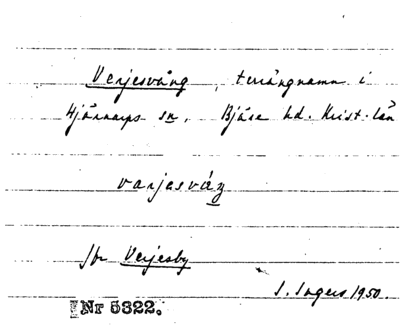 Verjesvång, terrängnamn i
Hjärnarps sn, Bjäre hd. Krist. län
varjesváŋ
Jfr Verjesby
I. Ingers 1950.
Nr 5322.